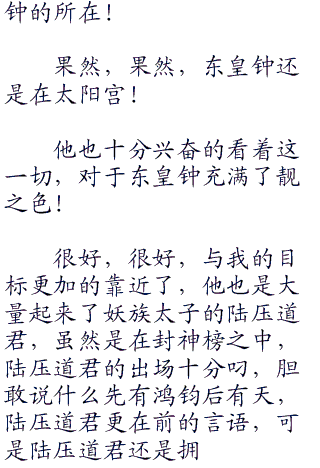 钟的所在！
果然，果然，东皇钟还
是在太阳宫！
他也十分兴奋的看着这
一切，对于东皇钟充满了靓
之色！
很好，很好，与我的目
标更加的靠近了，他也是大
量起来了妖族太子的陆压道
君，虽然是在封神榜之中，
陆压道君的出场十分叼，胆
敢说什么先有鸿钧后有天，
陆压道君更在前的言语，可
是陆压道君还是拥